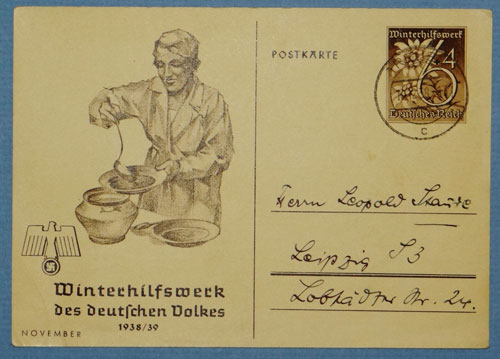 Winterhilfswerk
des deutschen Volkes
1938/39
NOVEMBER
POSTKARTE
Winterhilfswerk
6+4
Deutsches Reich
c
Herrn Leopold Staude
Leipzig S 3
Lobstädter Str. 24.